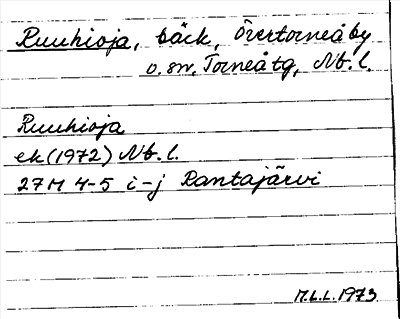 Ruuhioja, bäck, Övertorneå by
o. sn, Torneå tg, Nb. l.
Ruuhioja
ek (1972) Nb. l.
27M 4-5 i-j Rantajärvi
M.L.L. 1973